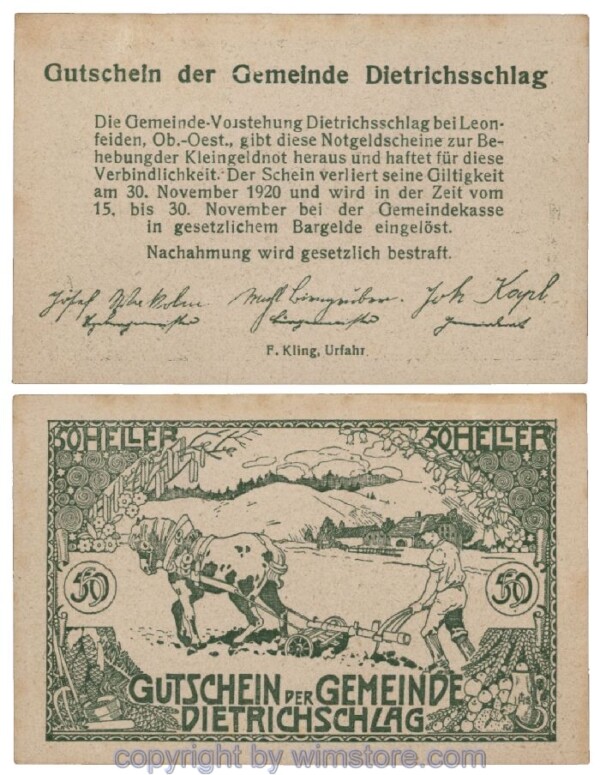 Gutschein der Gemeinde Dietrichsschlag
Die Gemeinde-Vorstehung Dietrichsschlag bei Leon-
feiden, Ob.-Oest., gibt diese Notgeldscheine zur Be-
hebungder Kleingeldnot heraus und haftet für diese
Verbindlichkeit. Der Schein verliert seine Giltigkeit
am 30. November 1920 und wird in der Zeit vom
15. bis 30. November bei der Gemeindekasse
in gesetzlichem Bargelde eingelöst.
Nachahmung wird gesetzlich bestraft.
Josef
Joh Kapl
F. Kling, Urfahr
50 HELLER 50 HELLER
50 50
GUTSCHEIN DER GEMEINDE
DIETRICHSCHLAG
copyright by wimstore.com